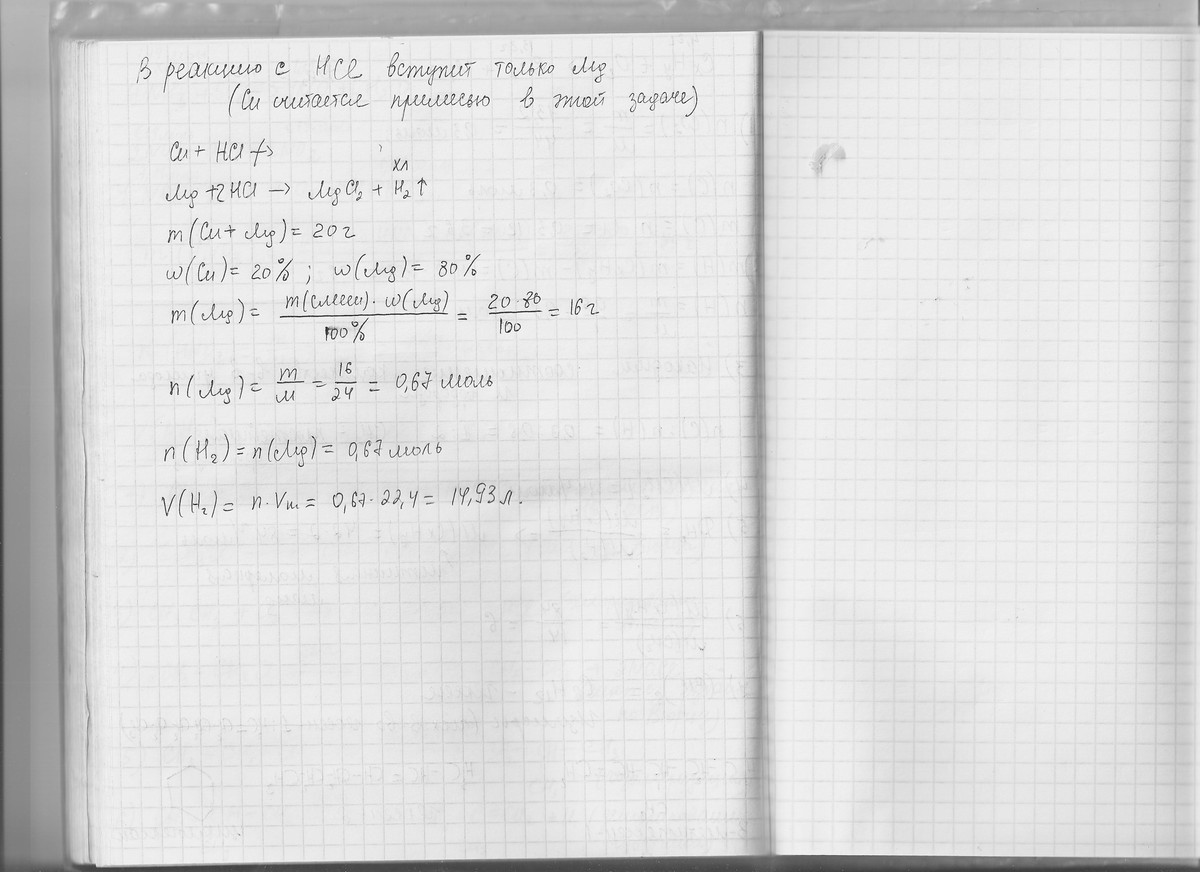 В реакцию с HCl вступит только Mg
(Cu считается примесью в этой задаче)
Cu + HCl ↛
хл
Mg + 2HCl → MgCl₂ + H₂↑
m(Cu + Mg) = 20 г
w(Cu) = 20% ; w(Mg) = 80%
m(Mg) = m(смеси) · w(Mg) / 100% = 20 · 80 / 100 = 16 г
n(Mg) = m / M = 16 / 24 = 0,67 моль
n(H₂) = n(Mg) = 0,67 моль
V(H₂) = n · Vm = 0,67 · 22,4 = 14,93 л.